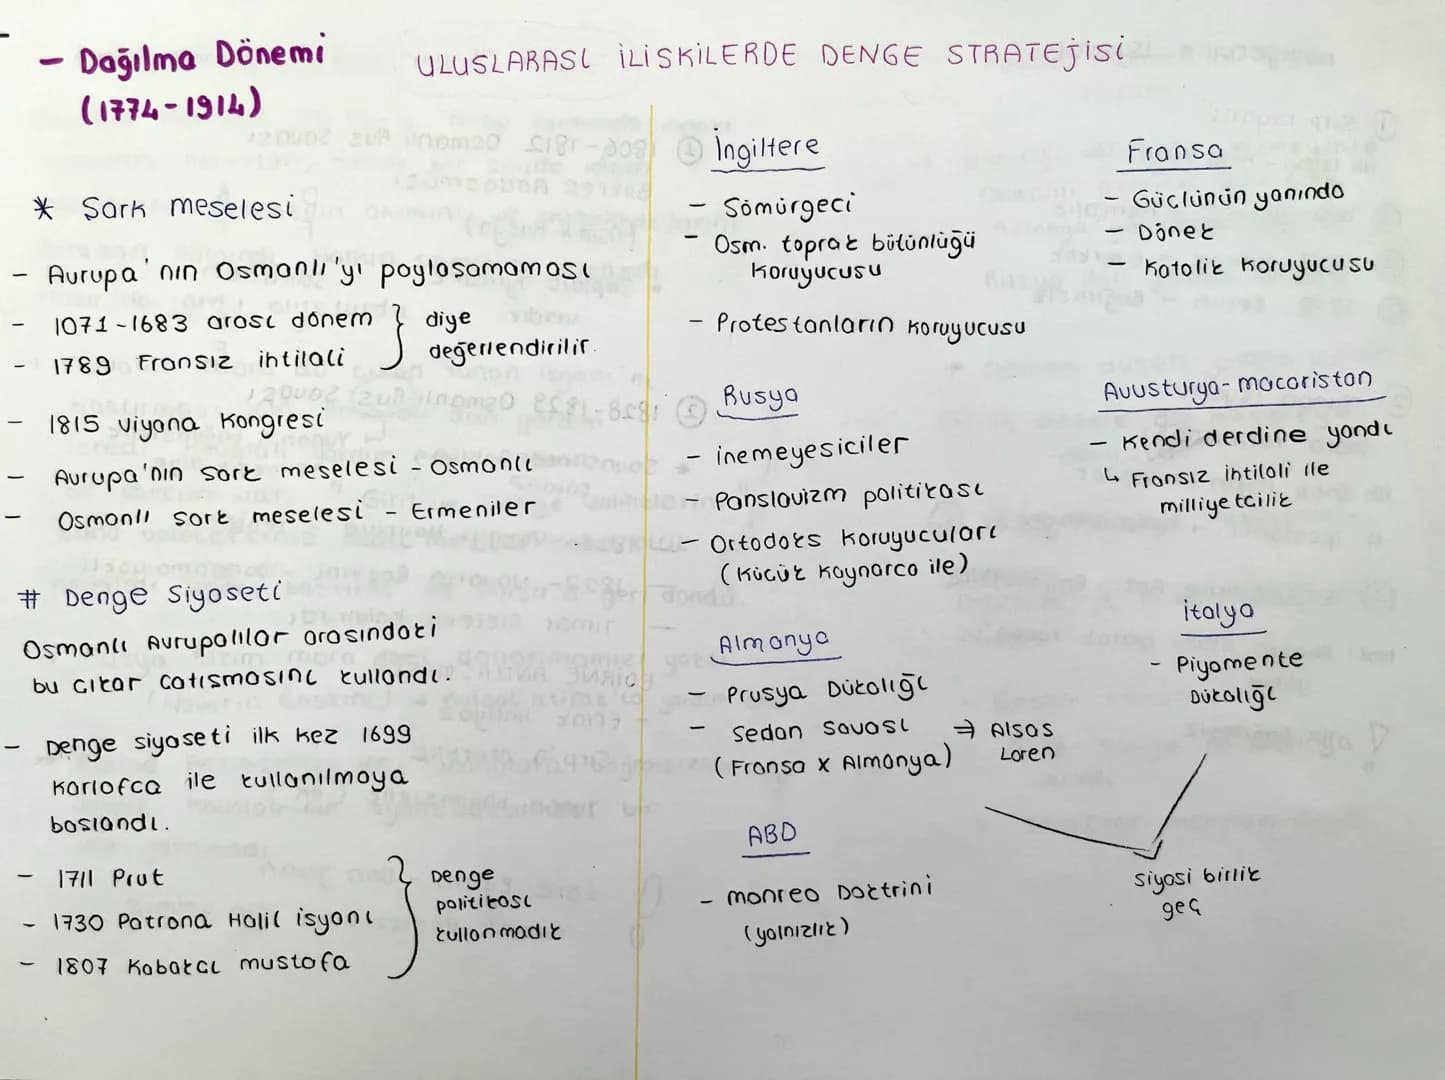 - Dağılma Dönemi
(1774-1914)
ULUSLARASI İLİSKİLERDE DENGE STRATEJİSİ
* Sark meselesi
- Avrupa'nın Osmanlı'yı paylasamaması
- 1071-1683 arası dönem } diye
- 1789 Fransız ihtilali değerlendirilir.
- 1815 Viyana Kongresi
- Avrupa'nın sark meselesi - Osmanlı
- Osmanlı sark meselesi - Ermeniler
# Denge Siyaseti
Osmanlı Avrupalılar arasındaki
bu cıkar catısmasını kullandı.
- Denge siyaseti ilk kez 1699
Karlofca ile kullanılmaya
baslandı.
- 1711 Prut } Denge
- 1730 Patrona Halil isyanı politikası
- 1807 Kabakcı mustafa kullanmadık
İngiltere
- Sömürgeci
- Osm. toprak bütünlüğü
koruyucusu
- Protestanların koruyucusu
Fransa
- Güclünün yanında
- Dönek
- Katolik koruyucusu
Rusya
- inemeyesiciler
- Panslavizm politikası
- Ortodoks koruyucuları
(Kücük Kaynarca ile)
Avusturya-macaristan
- Kendi derdine yandı
↳ Fransız ihtilali ile
milliyetcilik
Almanya
- Prusya Dükalığı
- Sedan Savası ⇒ Alsas
(Fransa x Almanya) Loren
İtalya
- Piyamente
Dükalığı
siyasi birlik
geç
ABD
- monreo Doktrini
(yalnızlık)